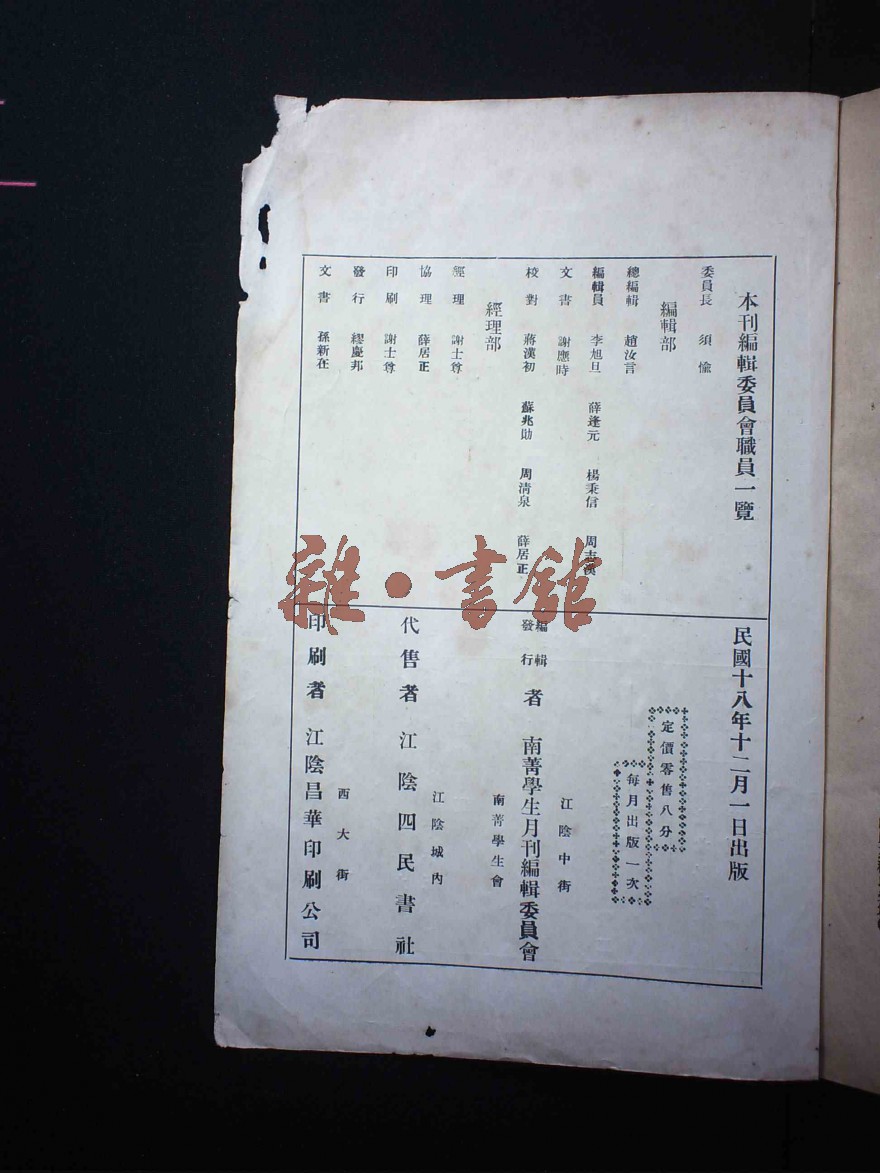 本刊編輯委員會職員一覽
委員長 須愉
編輯部
總編輯 趙汝言
編輯員 李旭旦 薛逢元 楊秉信 周志漢
文書 謝應時
校對 蔣漢初 蘇兆勛 周清泉 薛居正
經理部
經理 謝士尊
協理 薛居正
印刷 謝士尊
發行 繆慶邦
文書 孫新在
民國十八年十二月一日出版
定價零售八分
每月出版一次
江陰中街
編輯
發行 者 南菁學生月刊編輯委員會
南菁學生會
江陰城內
代售者 江陰四民書社
西大街
印刷者 江陰昌華印刷公司
雜·書館